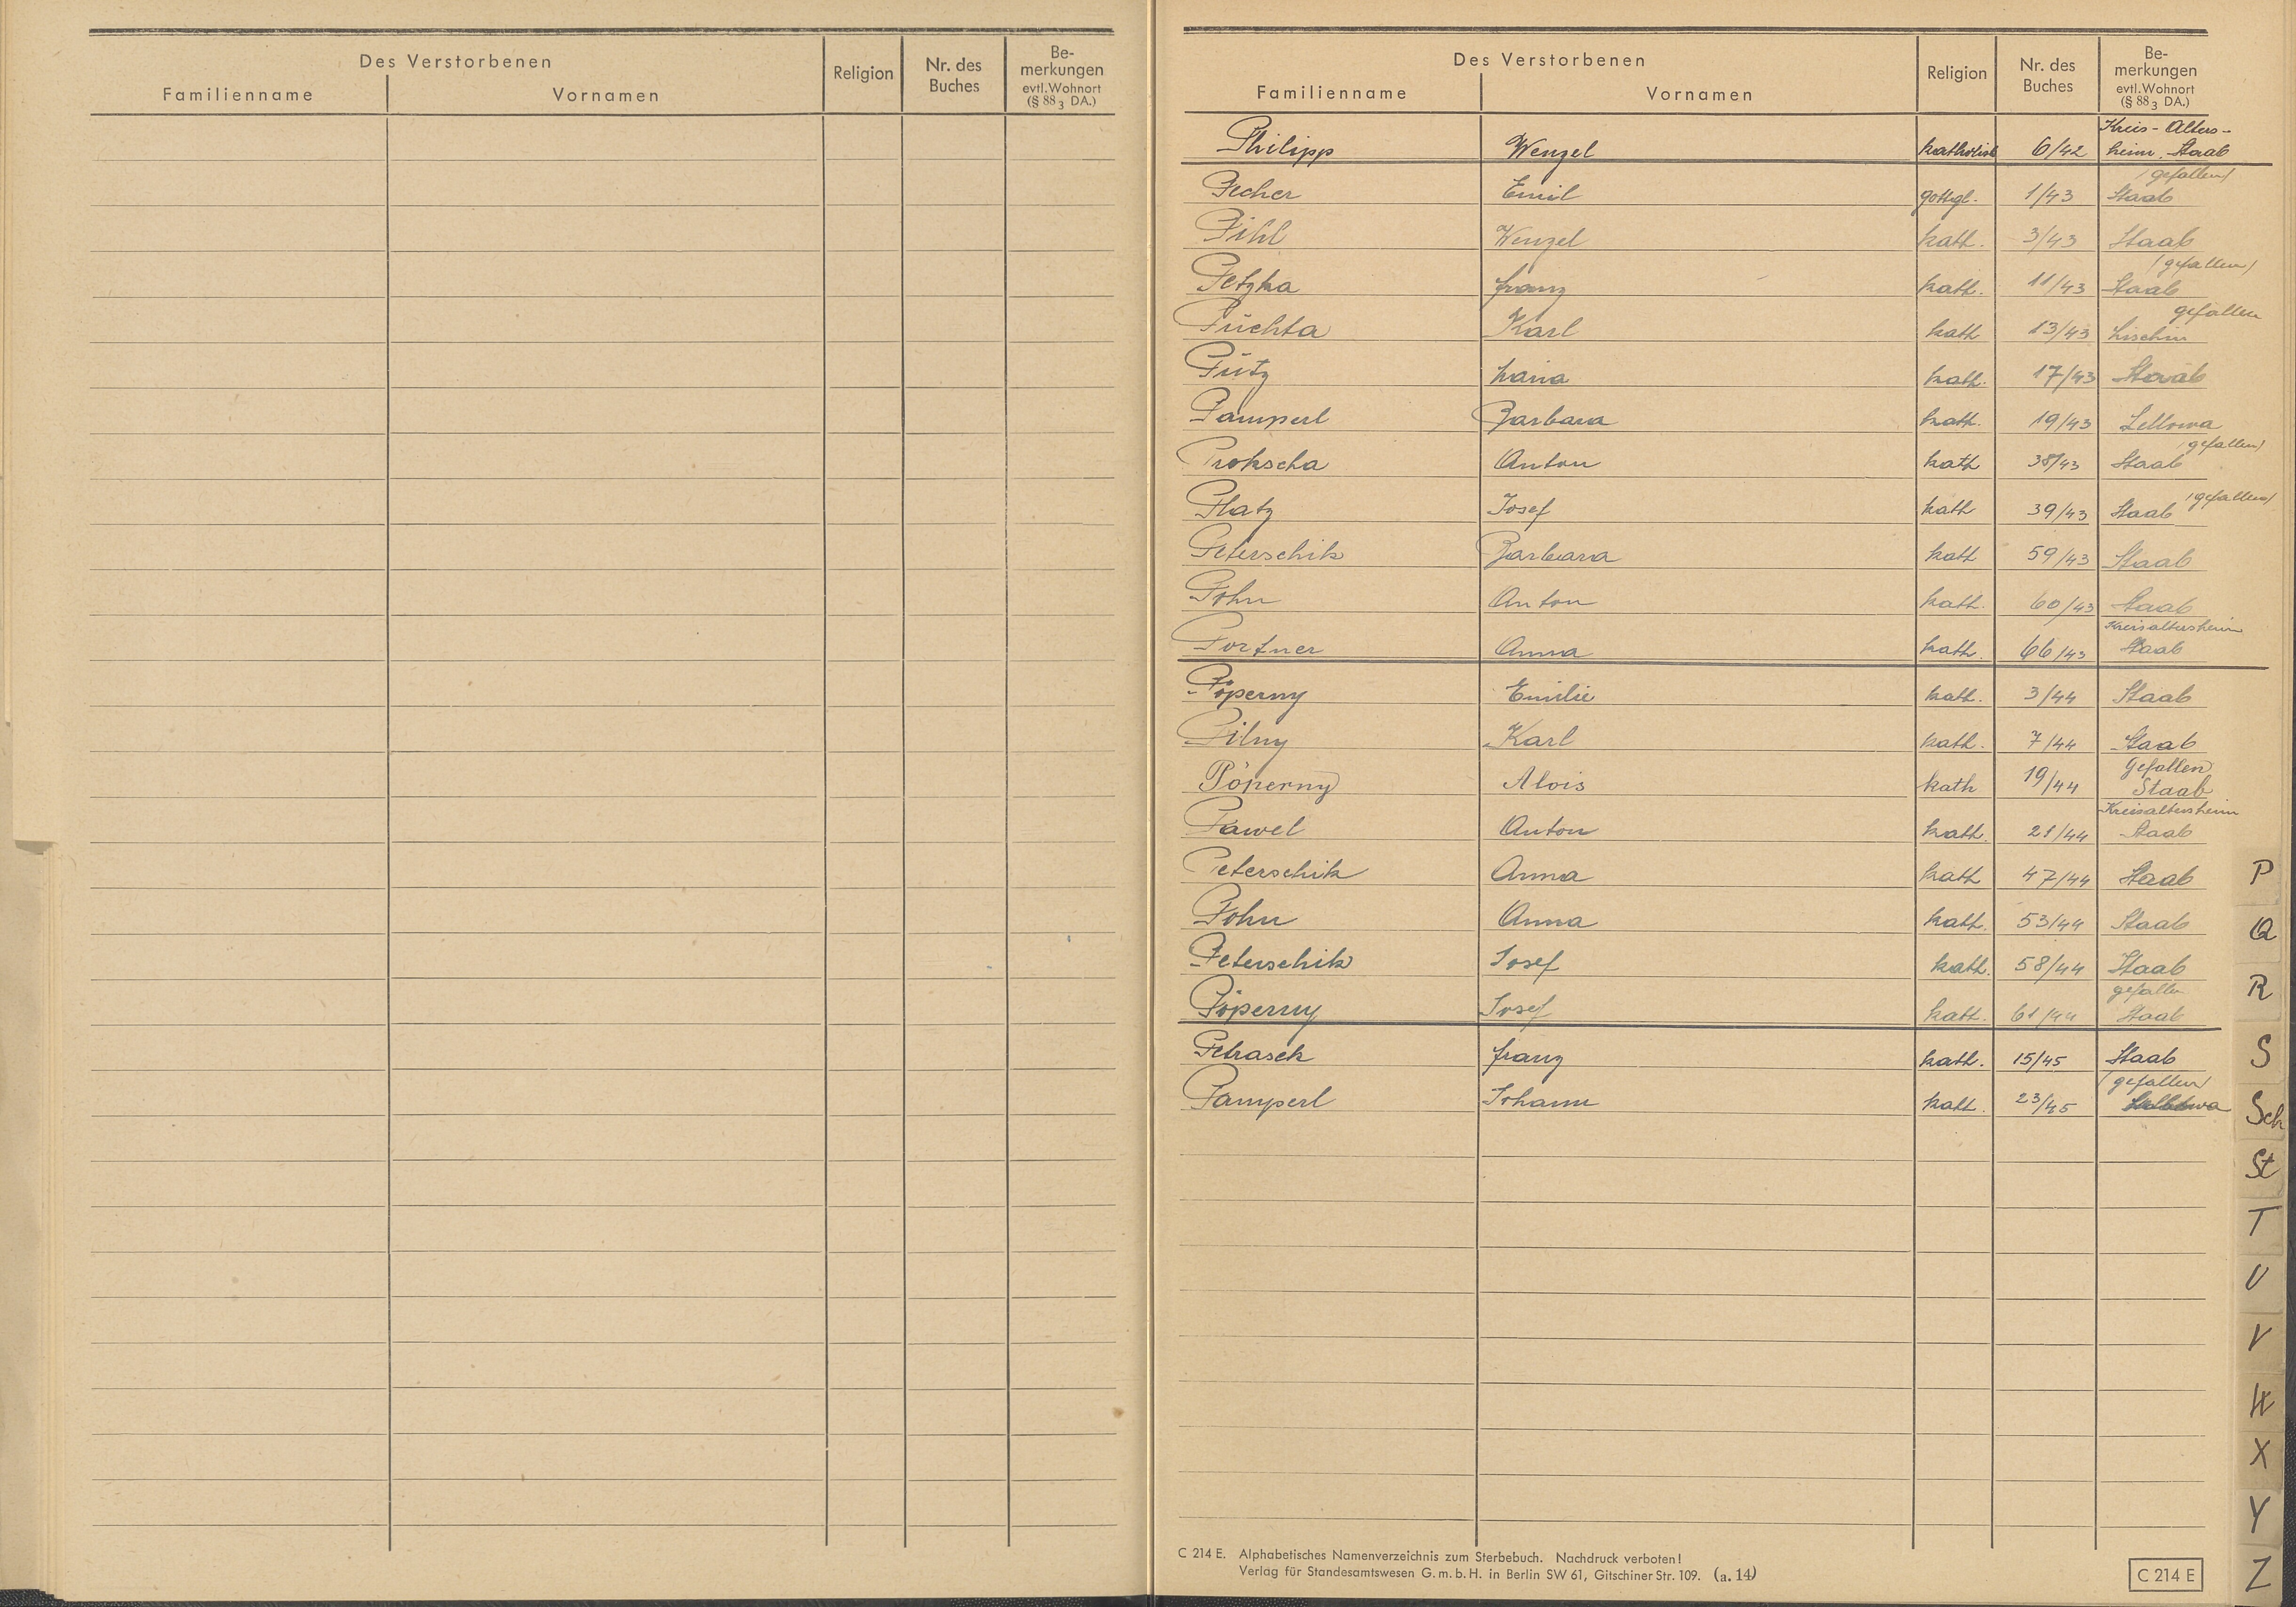 Des Verstorbenen
Familienname Vornamen Religion Nr. des Buches Be-merkungen evtl. Wohnort (§ 88 3 DA.)
Des Verstorbenen
Familienname Vornamen Religion Nr. des Buches Be-merkungen evtl. Wohnort (§ 88 3 DA.)
Philipp Wenzel katholisch 6/42 Kreis-Alters-heim, Staab
Pecher Emil gottgl. 1/43 Staab (gefallen)
Pihl Wenzel kath. 3/43 Staab
Petzka Franz kath. 11/43 Staab (gefallen)
Püchta Karl kath 13/43 Lischin gefallen
Pütz Maria kath. 17/43 Staab
Pamperl Barbara kath. 19/43 Lellowa
Prokscha Anton kath 38/43 Staab (gefallen)
Platz Josef kath 39/43 Staab (gefallen)
Peterschik Barbara kath 59/43 Staab
Pohn Anton kath. 60/43 Staab
Portner Anna kath. 66/43 Kreisaltersheim Staab
Pöperny Emilie kath. 3/44 Staab
Pilny Karl kath. 7/44 Staab
Pöperny Alois kath 19/44 Gefallen Staab
Pawel Anton kath. 21/44 Kreisaltersheim Staab
Peterschik Anna kath 47/44 Staab
Pohn Anna kath. 53/44 Staab
Peterschik Josef kath. 58/44 Staab
Pöperny Josef kath. 61/44 gefallen Staab
Petrasek Franz kath. 15/45 Staab
Pamperl Johann kath. 23/45 (gefallen)
P
Q
R
S
Sch
St
T
U
V
W
X
Y
Z
C 214 E. Alphabetisches Namenverzeichnis zum Sterbebuch. Nachdruck verboten!
Verlag für Standesamtswesen G. m. b. H. in Berlin SW 61, Gitschiner Str. 109. (a. 14)
C 214 E